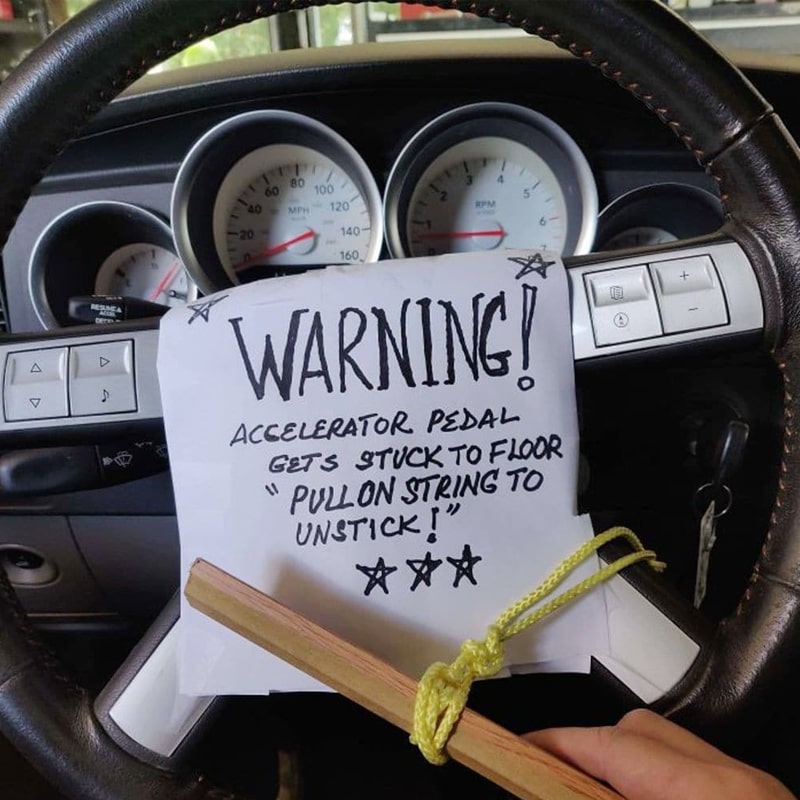 60 80 100
40 120
MPH
20 140
0 160
1 2 3 4 5 6 7
RPM
RESUME▲
ACCEL
+
−
WARNING!
ACCELERATOR PEDAL
GETS STUCK TO FLOOR
" PULL ON STRING TO
UNSTICK!"